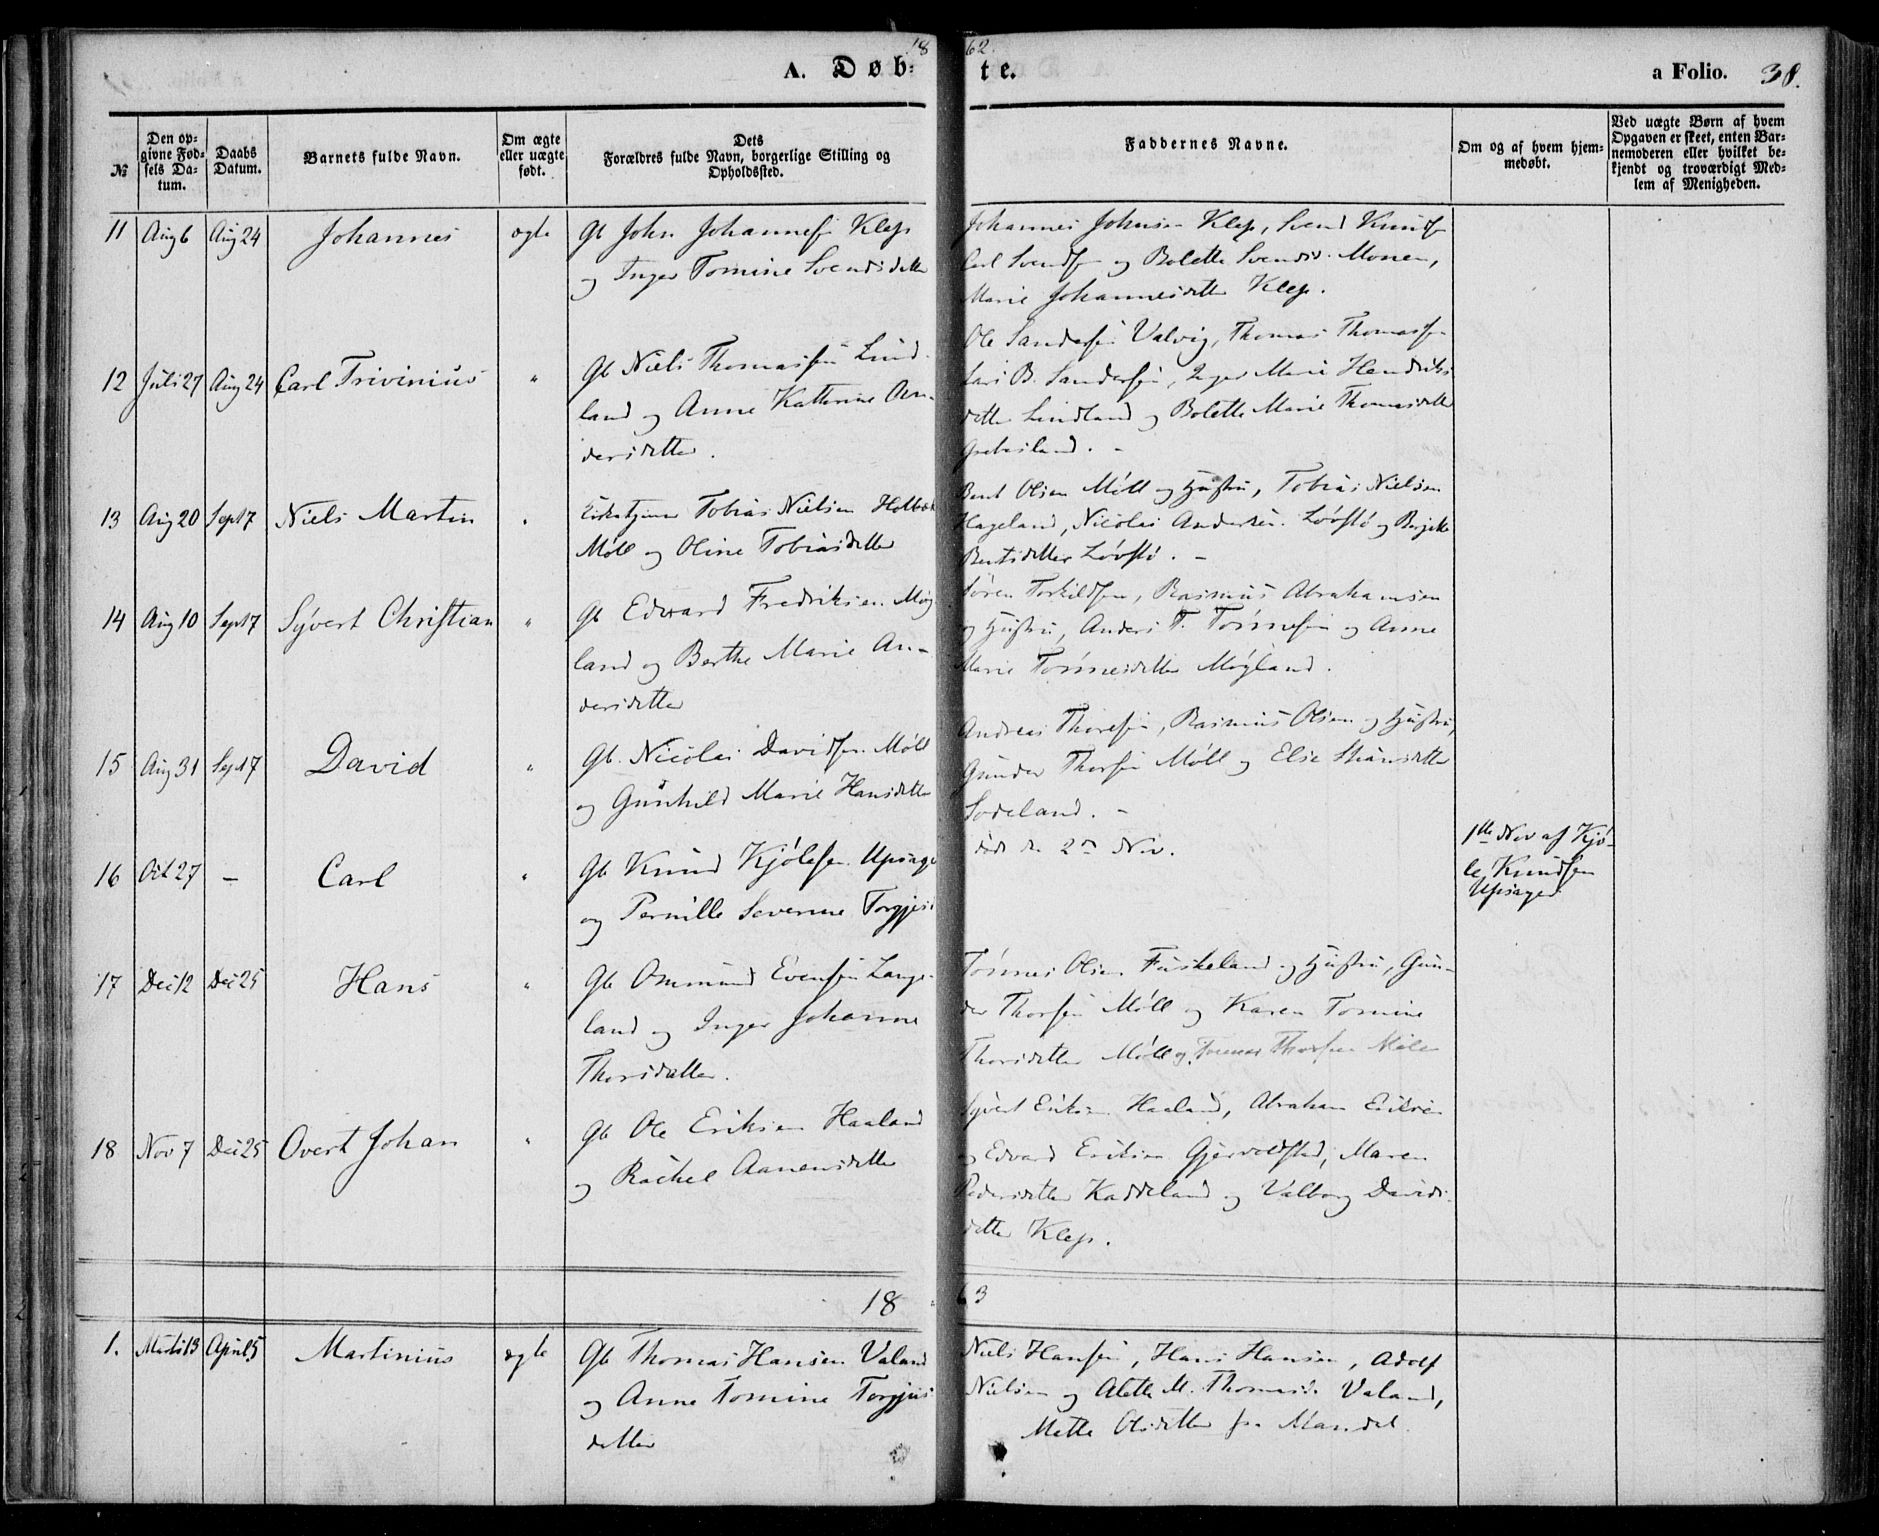 1862.
A. Døbte. a Folio. 38.
№
Den opgivne Fødsels Datum.
Daabs Datum.
Barnets fulde Navn.
Om ægte eller uægte født.
Dets Forældres fulde Navn, borgerlige Stilling og Opholdssted.
Faddernes Navne.
Om og af hvem hjemmedøbt.
Ved uægte Børn af hvem Opgaven er skeet, enten Barnemoderen eller hvilket bekjendt og troværdigt Medlem af Menigheden.
11 Aug 6 Aug 24 Johannes ægte
Gb John Johannesen Klep
og Inger Tomine Svendsdatter
Johannes Johnsen Klep, Svend Knudsen
Carl Svendsen og Bolette Svendsd. Monen,
Marie Johannesdatter Klep.
12 Juli 27 Aug 24 Carl Trivinius "
Gb Niels Thomassen Lind-
land og Anne Kathrine An-
dersdatter.
Ole Sandersen Valvig, Thomas Thomassen
Lars B. Sandersen, Inger Marie Hendriks
datter Lindland og Bolette Marie Thomasdatter
13 Aug 20 Sept 7 Niels Martin "
Tobias Nielsen
Møll og Oline Tobiasdatter
Bent Olsen Møll og Hustru, Tobias Nielsen
Hageland, Nicolai Andersen Løvstø og
Bentsdatter Løvstø. -
14 Aug 10 Sept 7 Syvert Christian "
Gb Edvard Fredriksen Møg
land og Berthe Marie An-
dersdatter
Søren Torkildsen, Rasmus Abrahamsen
og Hustru, Anders T. Tønnesen og Anne
Marie Tønnesdatter Møgland.
15 Aug 31 Sept 7 David "
Gb. Nicolai Davidsen Møll
og Gunhild Marie Hansdatter
Andreas Thorsen, Rasmus Olsen og Hustru,
Gunder Thorsen Møll og Elise datter
Sodeland. -
16 Oct 27 - Carl "
Gb Knud Kjølesen Upsager
og Pernille Severine Torgjus
død den 2den Nov.
1ste Nov af Kjø-
le Knudsen
Upsager.
17 Dec 12 Dec 25 Hans "
Gb Ommund Evensen Lange-
land og Inger Johanne
Thorsdatter.
Tønnes Olsen Fuskeland og Hustru, Gun-
der Thorsen Møll og Karen Tomine
Thorsdatter Møll og Tønnes Thorsen Møll
18 Nov 7 Dec 25 Overt Johan "
Gb Ole Eriksen Haaland
og Rachel Aanensdatter
Syvert Eriksen Haaland, Abraham Eriksen
og Edvard Eriksen Gjervoldstad, Maren
Pedersdatter Kaddeland og Valborg Davids-
datter Klep.
1863
1. Marts 13 April 5 Martinius ægte
Gb Thomas Hansen Valand
og Anne Tomine Torgjus
datter
Niels Hansen, Hans Hansen, Adolf
Nielsen og Alette M. Thomasd. Valand,
Mette Olsdatter fra Mandal.